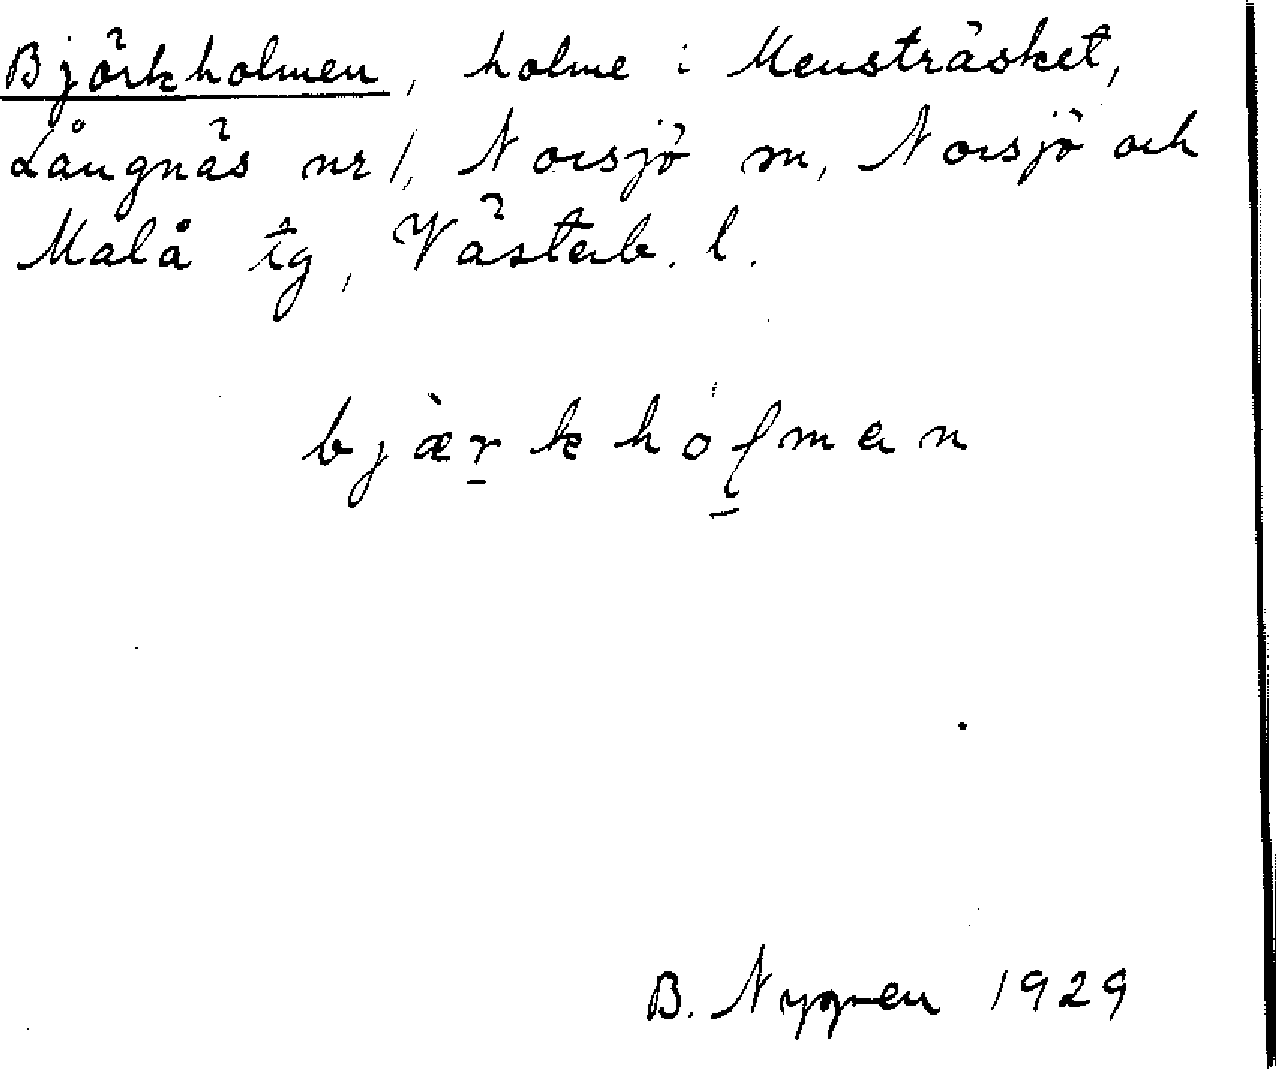 Björkholmen, holme i Mensträsket,
Långnäs nr 1, Norsjö sn, Norsjö och
Malå tg, Västerb. l.
bjæ̀r̲khóɭ̲men
B. Nygren 1929